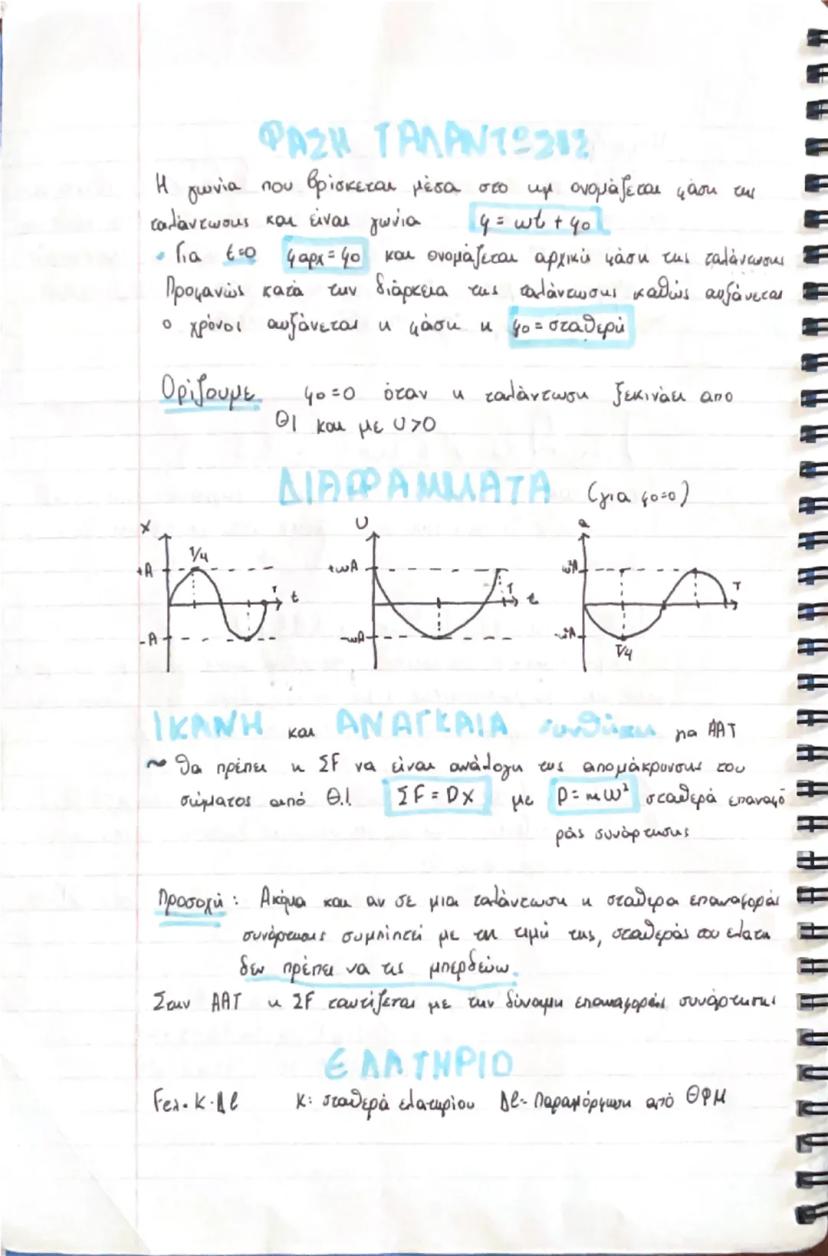 ΦΑΣΗ ΤΑΛΑΝΤΩΣΗΣ
Η γωνία που βρίσκεται μέσα στο ημ ονομάζεται φάση της
ταλάντωσης και είναι γωνία φ = ωt + φ0
• Για t=0 φαρχ = φ0 και ονομάζεται αρχική φάση της ταλάντωσης
Προφανώς κατά την διάρκεια της ταλάντωσης καθώς αυξάνεται
ο χρόνος αυξάνεται η φάση η φ0 = σταθερή
Ορίζουμε φ0=0 όταν η ταλάντωση ξεκινάει απο
ΘΙ και με U>0
ΔΙΑΓΡΑΜΜΑΤΑ (για φ0=0)
x U a
+A T/4 T t -A
+ωA T t -ωA
ω²A T -ω²A T/4
ΙΚΑΝΗ και ΑΝΑΓΚΑΙΑ συνθήκη για ΑΑΤ
~ Θα πρέπει η ΣF να είναι ανάλογη της απομάκρυνσης του
σώματος από Θ.Ι. ΣF = DX με D = mω² σταθερά επαναφο
ράς συνάρτησης
Προσοχή: Ακόμα και αν σε μια ταλάντωση η σταθερα επαναφοράς
συνάρτησης συμπίπτει με τη τιμή της, σταθεράς του ελατη
δεν πρέπει να τις μπερδεύω.
Στην ΑΑΤ η ΣF ταυτίζεται με την δύναμη επαναφοράς συνάρτησης
ΕΛΑΤΗΡΙΟ
Fελ = K·Δl K: σταθερά ελατηρίου Δl = Παραμόρφωση από ΘΦΜ